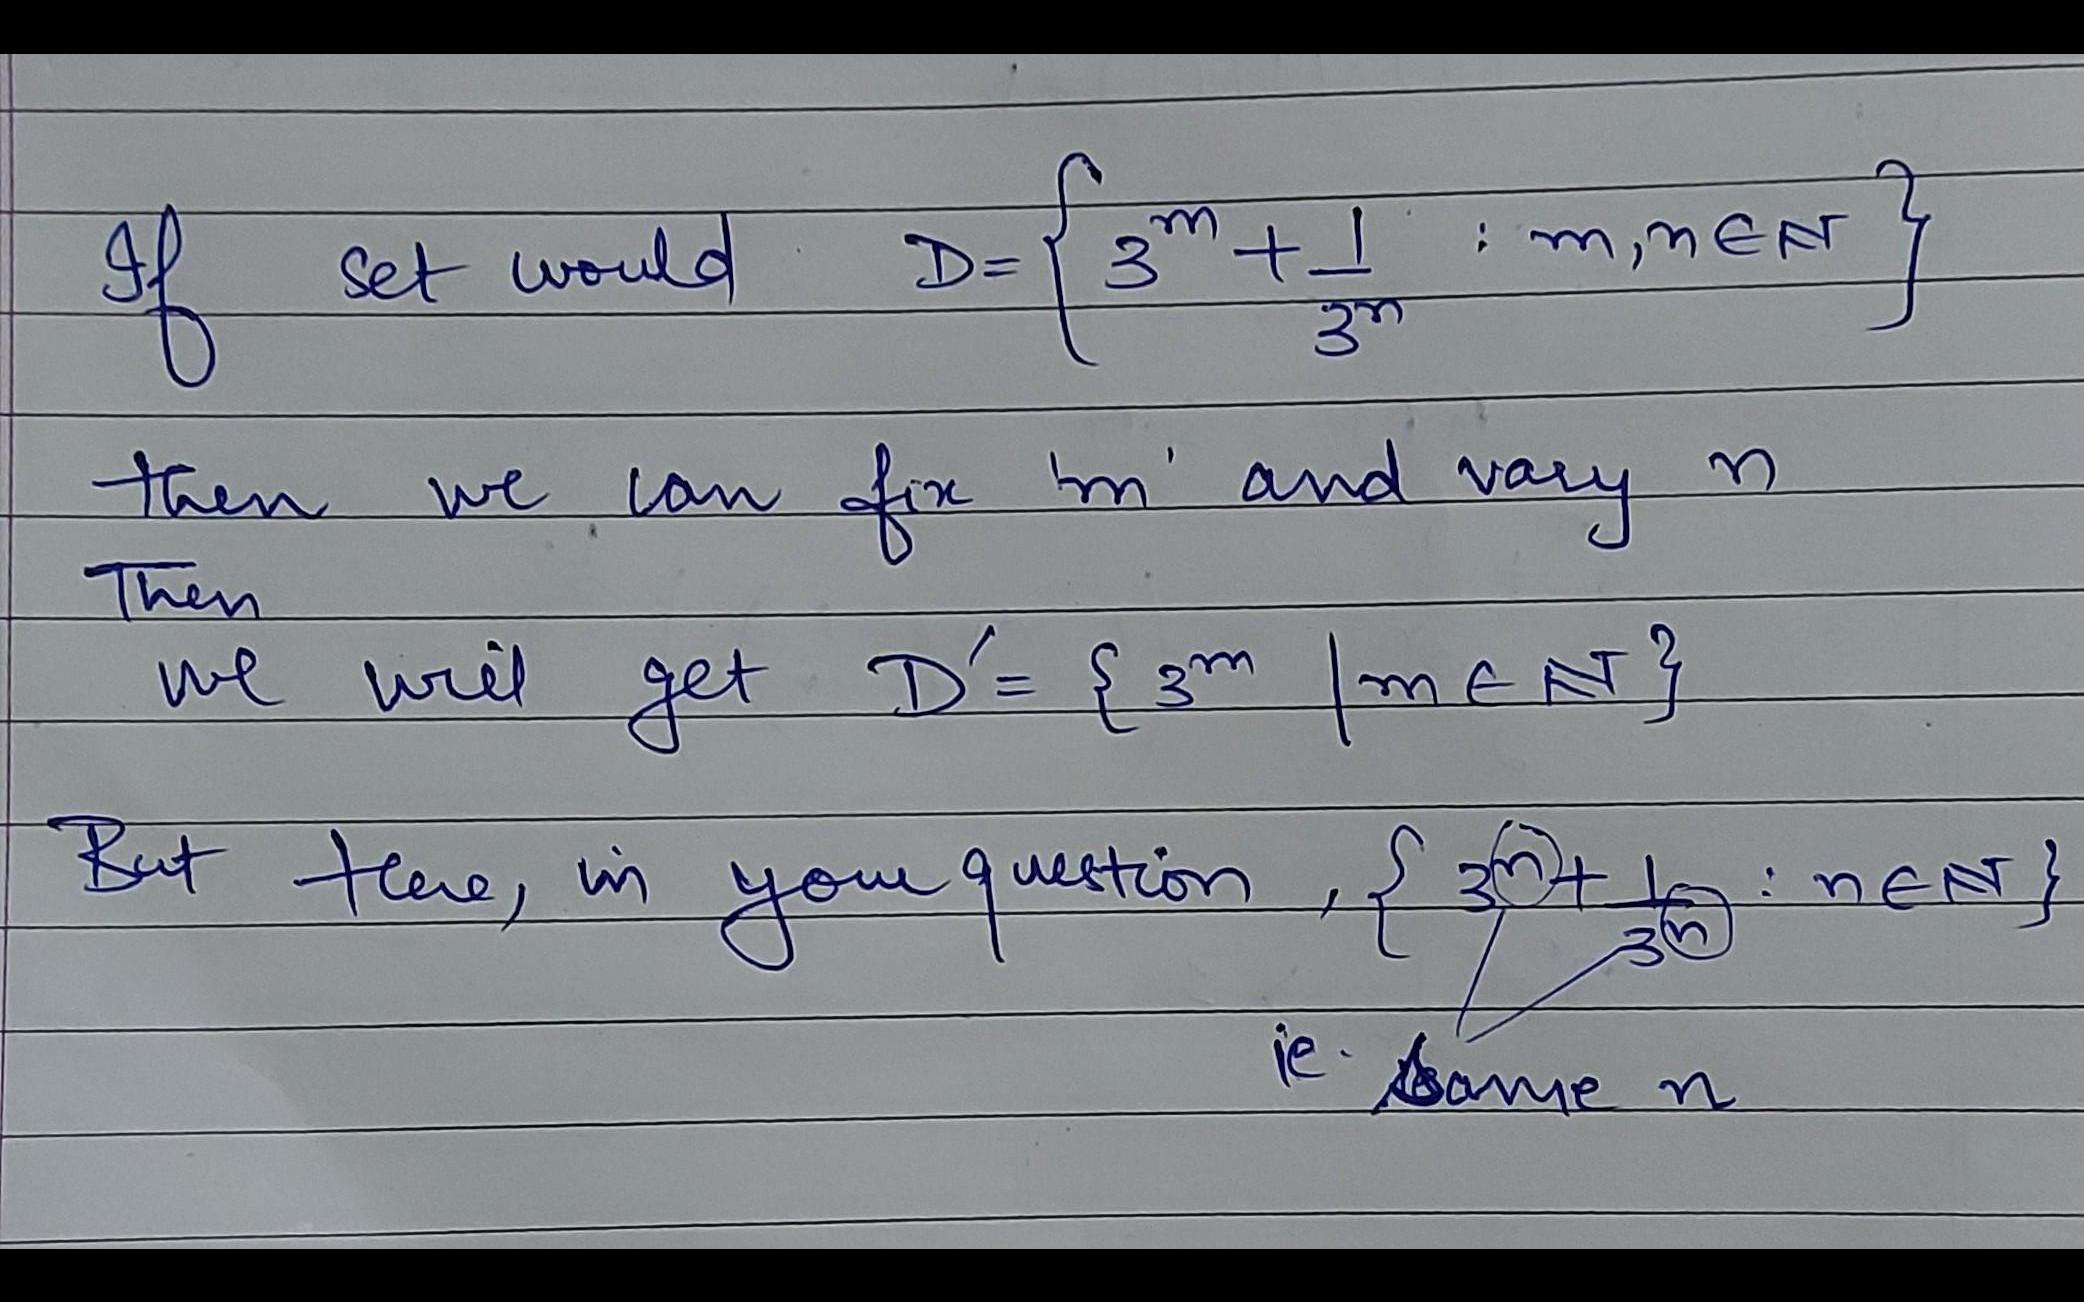 If set would D = { 3^m + 1/3^n : m, n ∈ ℕ }
then we can fix 'm' and vary n
Then
we will get D' = { 3^m | m ∈ ℕ }
But here, in your question, { 3^n + 1/3^n : n ∈ ℕ }
ie. same n